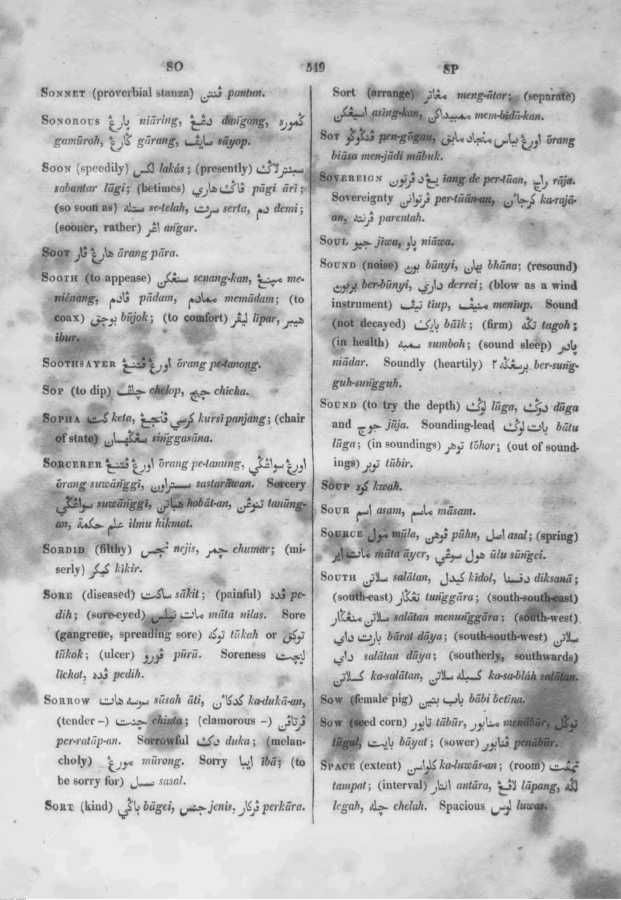 SO
519
SP
SONNET (proverbial stanza) ڤنتن pantun.
SONOROUS ڽارڠ niāring, دڠڠ dangong, گموره
gamūroh, گارڠ gārang, سايڤ sāyop.
SOON (speedily) لكس lakás; (presently) سبنترلاگ
sabantar lāgi; (betimes) ڤاگ هاري pāgi āri;
(so soon as) ستله se-telah, سرت serta, دم demi;
(sooner, rather) اڠر angar.
SOOT هارڠ ڤار ārang pāra.
SOOTH (to appease) سنڠكن senang-kan, me-
niēnang, ڤادم pādam, ممادم memādam; (to
coax) بوجق būjok; (to comfort) ليڤر lipar, هيبر
ibur.
SOOTHSAYER اورڠ ڤتنڠ ōrang pe-tanong.
SOP (to dip) چلڤ chelop, چيچ chicha.
SOPHA كت keta, كرسي ڤنجڠ kursi panjang; (chair
of state) سڠگهسان singgasāna.
SORCERER اورڠ ڤتنڠ ōrang pe-tanung, اورڠ سواڠگي
ōrang suwānggi, sastarāwan. Sorcery
سواڠگي suwānggi, هباتن hobāt-an, تنوڠن tanūng-
an, علم حكمة ilmu hikmat.
SORDID (filthy) نجس nejis, چمر chumar; (mi-
serly) كيكر kīkir.
SORE (diseased) ساكت sākit; (painful) ڤده pe-
dih; (sore-eyed) مات نيلس māta nīlas. Sore
(gangrene, spreading sore) توكه tūkah or توكق
tūkok; (ulcer) ڤورو pūrū. Soreness ليچت
līchat, ڤده pedih.
SORROW سوسه هات sūsah āti, كدكائن ka-dukā-an,
(tender –) چنت chinta; (clamorous –) ڤرتاڤن
per-ratāp-an. Sorrowful دك duka; (melan-
choly) مورڠ mūrong. Sorry ايبا ībā; (to
be sorry for) سسل sasal.
SORT (kind) باڬي bāgei, جنس jenis, ڤركار perkāra.
Sort (arrange) مڠاتر meng-ātor; (separate)
اسيڠكن asing-kan, ممبيداكن mem-bidā-kan.
SOT ڤڠگوگو pen-gōgau, اورڠ بياس منجاد مابق ōrang
biāsa men-jādi mābuk.
SOVEREIGN يڠ د ڤرتون iang de per-tūan, راج rāja.
Sovereignty ڤرتوانن per-tūan-an, كرجائن ka-rajā-
an, ڤرنته parentah.
SOUL جيو jiwa, ڽاو niāwa.
SOUND (noise) بوڽ būnyi, بهان bhāna; (resound)
بربوڽ ber-būnyi, derrei; (blow as a wind
instrument) تيڤ tiup, منيڤ menīup. Sound
(not decayed) بايك bāik; (firm) تگه tagoh;
(in health) سمبه sumboh; (sound sleep) ڽادر
niādar. Soundly (heartily) برسڠگه٢ ber-sung-
guh-sungguh.
SOUND (to try the depth) لوگ lūga, دوگ dūga
and جوج jūja. Sounding-lead بات لوگ bātu
lūga; (in soundings) توهر tōhor; (out of sound-
ings) توبر tūbir.
SOUP كوه kwah.
SOUR اسم asam, ماسم māsam.
SOURCE مول mūla, ڤوهن pūhn, اصل asal; (spring)
مات اير māta āyer, هول سوڠي ūlu sūngei.
SOUTH سلاتن salātan, كيدل kīdol, دقسنا diksanā;
(south-east) تڠگار tunggāra; (south-south-east)
سلاتن منڠگار salātan menunggāra; (south-west)
بارت داي bārat dāya; (south-south-west) سلاتن
داي salātan dāya; (southerly, southwards)
كسلاتن ka-salātan, كسبله سلاتن ka-sa-blāh salātan.
SOW (female pig) باب بتين bābi betīna.
SOW (seed corn) تابور tābūr, منابور menābūr, توگل
tūgal, بايت bāyat; (sower) ڤنابور penābūr.
SPACE (extent) كلواسن ka-luwās-an; (room) تمڤت
tampat; (interval) انتار antāra, لاڤڠ lāpang, لگه
legah, چله chelah. Spacious لوس luwas.